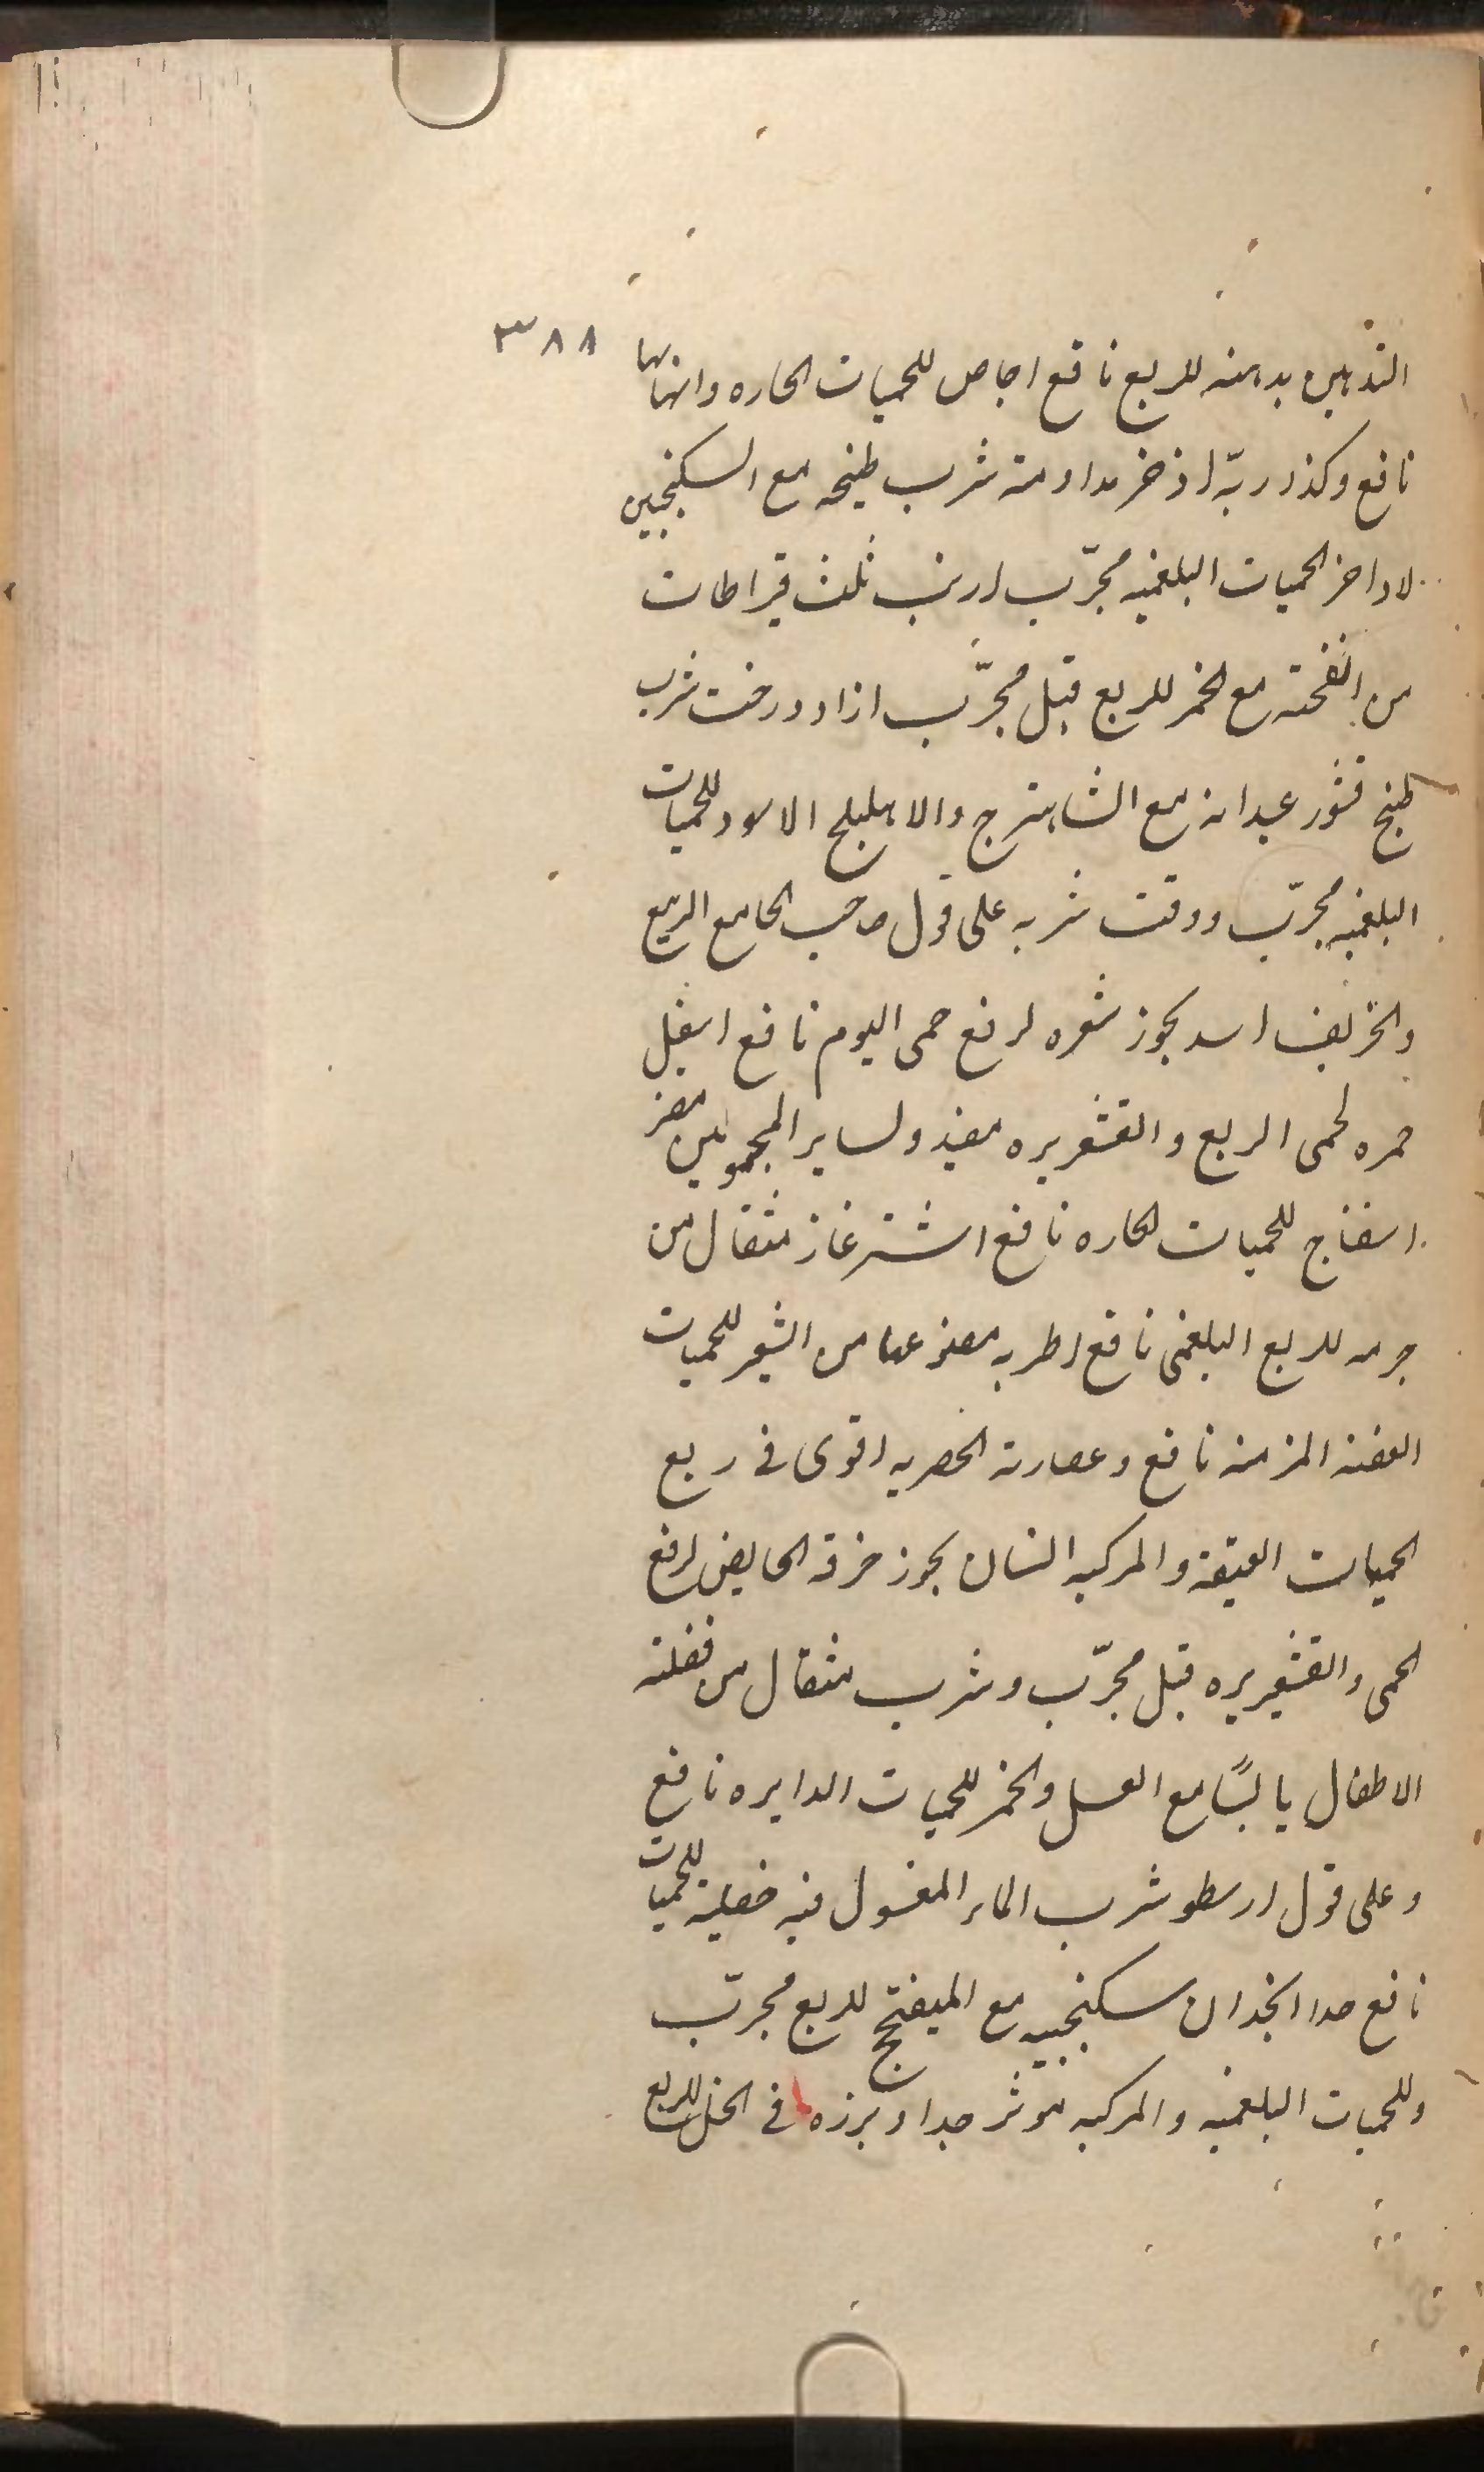 ٣٨٨
التدهين بدهنه للربع نافع اجاص للحميات الحاره وانهائها
نافع وكذا ربّه اذخر مداومة شرب طبيخه مع السكنجبين
لاواخر الحميات البلغميه مجرّب ارنب ثلث قيراطات
من انفحته مع الخمر للربع قيل مجرّب ازاددرخت شرب
طبيخ قشور عيدانه مع الشاهترج والاهليلج الاسود للحميات
البلغميه مجرّب ووقت شربه على قول صاحب الجامع الربيع
والخريف اسد بخور شعره لرفع حمى اليوم نافع اسفيل
خمره لحمى الربع والقشعريره مفيد ولساير المحمومين مضر
اسفناج للحميات الحاره نافع اشترغاز مثقال من
جرمه للربع البلغمى نافع اطريه مصنوعها من الشعير للحميات
العفنه المزمنه نافع وعصارته الحصريه اقوى فى ربع
الحميات العتيقة والمركبه انسان بخور خرقة الحايض لرفع
الحمى والقشعريره قيل مجرّب وشرب مثقال من فضلة
الاطفال يابسًا مع العسل والخمر للحميات الدايره نافع
وعلى قول ارسطو شرب الماء المغسول فيه خصيته للحميات
نافع جدا انجدان سكنجبينه مع الميفختج للربع مجرّب
وللحميات البلغميه والمركبه موثر جدا وبرزه فى الخل للربع